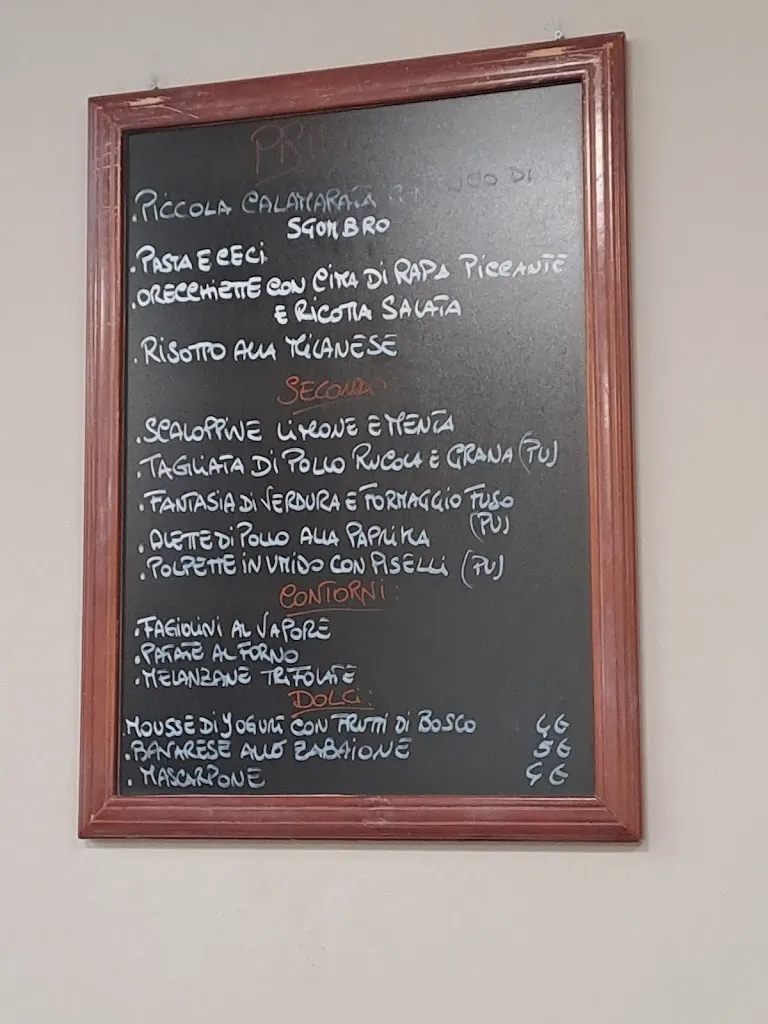 PRI
. PICCOLA CALAMARATA DI
SGOMBRO
. PASTA E CECI
. ORECCHIETTE CON CIMA DI RAPA PICCANTE
E RICOTTA SALATA
. RISOTTO ALLA MILANESE
SECONDI
. SCALOPPINE LIMONE E MENTA
. TAGLIATA DI POLLO RUCOLA E GRANA (PU)
. FANTASIA DI VERDURA E FORMAGGIO FUSO
. ALETTE DI POLLO ALLA PAPRIKA (PU)
. POLPETTE IN UMIDO CON PISELLI (PU)
CONTORNI:
. FAGIOLINI AL VAPORE
. PATATE AL FORNO
. MELANZANE TRIFOLATE
DOLCI:
. MOUSSE DI YOGURT CON FRUTTI DI BOSCO 4€
. BAVARESE ALLO ZABAIONE 5€
. MASCARPONE 4€